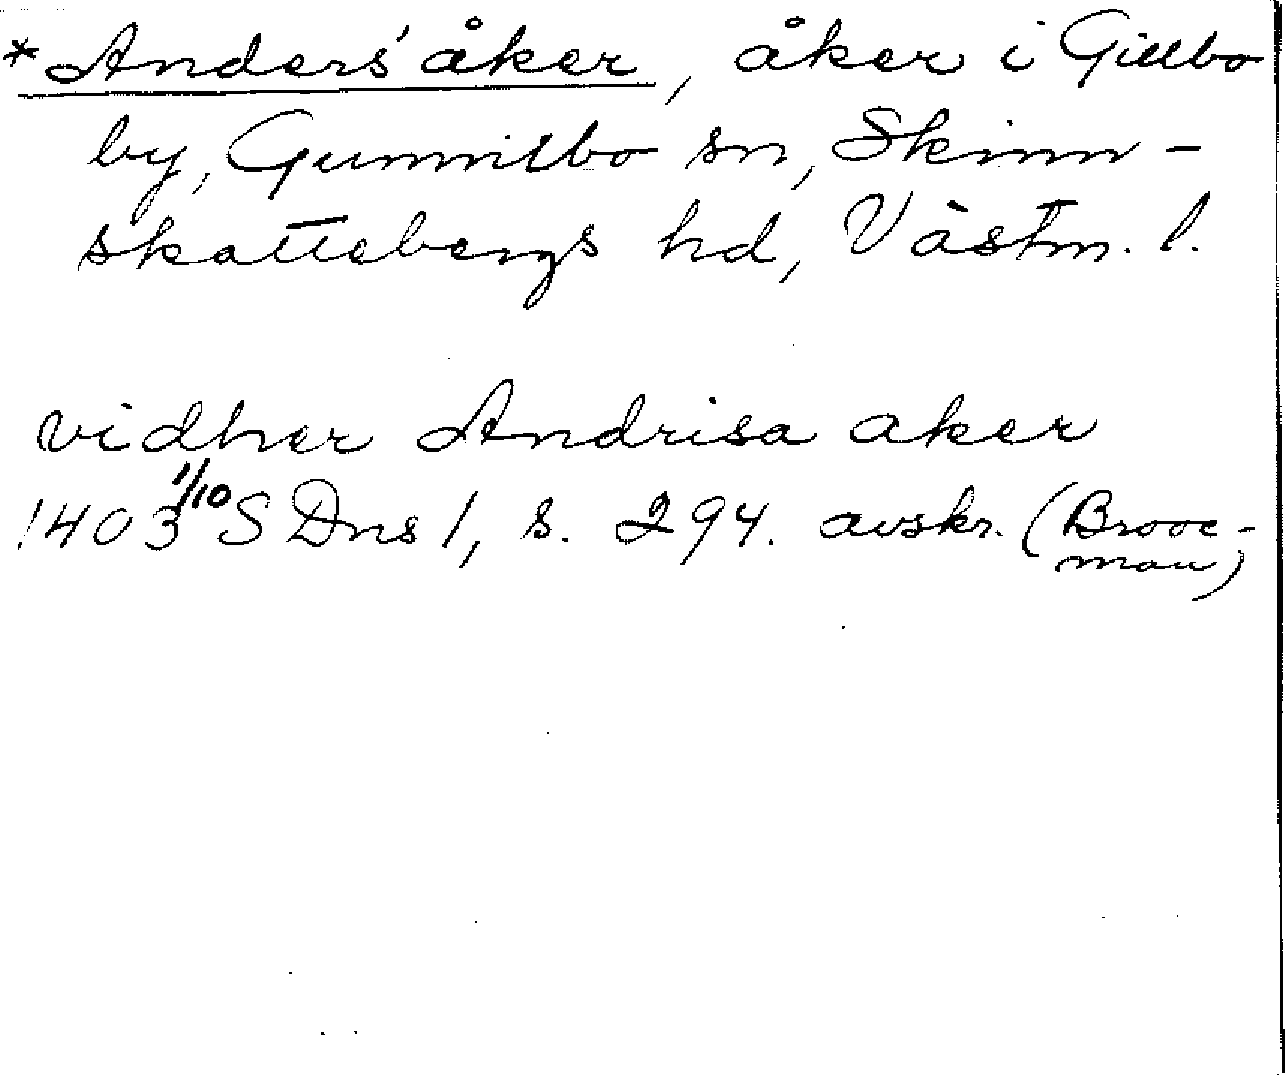 *Anders' åker, åker i Gillbo
by, Gunnilbo sn, Skinn-
skattebergs hd, Västm. l.
vidher Andrisa aker
1403 1/10 SDns 1, s. 294. avskr. (Brooc-
man)